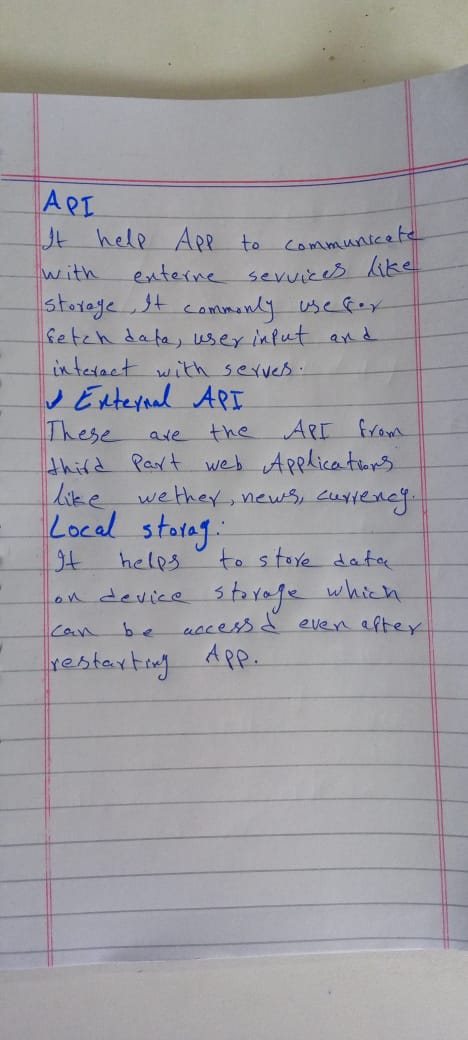 API
It help App to communicate
with externe servvices like
storage, It commonly use for
fetch data, user input and
interact with serves.
External API
These are the API from
third Part web Applications
like wether, news, currency.
Local storag:
It helps to store data
on device storage which
can be accessd even after
restarting App.